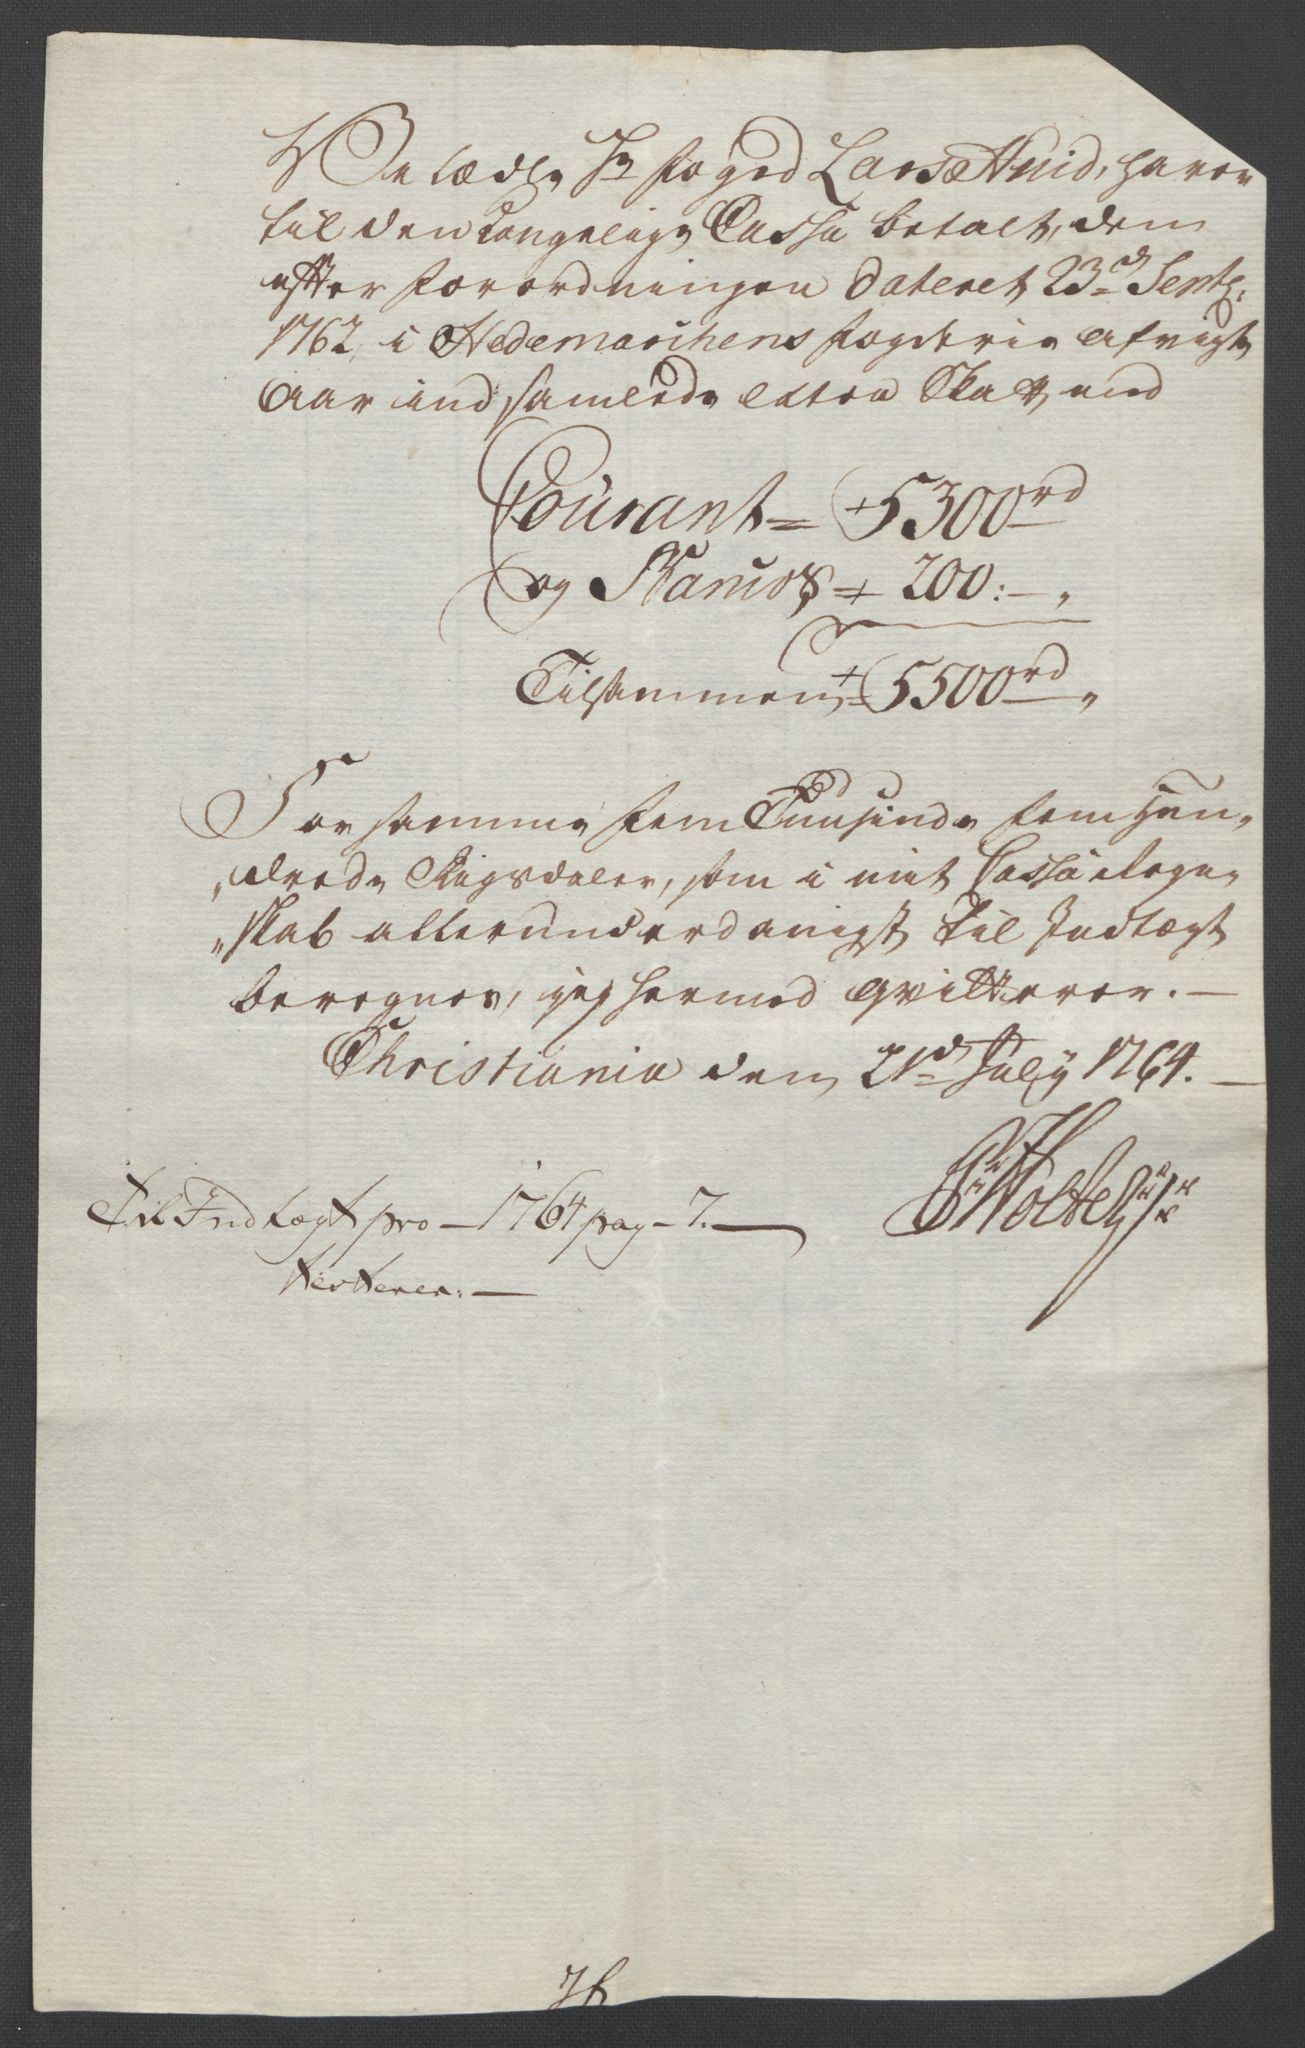 Velædle Hr Foged Lars Hvid, haver
til den Kongelige Cassa betalt, den
effter Forordningen dateret 23d Septr:
1762, i Hedemarchens Fogderie afvigte
Aar indsamlede extra Skatt, med
Courant = 5300rd
og = 200:—„
Tilsammen = 5500rd„
For samme Fem Tuusinde Fem Hun„
„drede Rigsdaler, som i mit Cassa Regn„
„skab allerunderdanigst til Indtægt
beregnes, jeg hermed qvitterer.—
Christiania den 21d July 1764.—
Holte
Til Indtægt pro — 1764 pag — 7.—
testerer.—